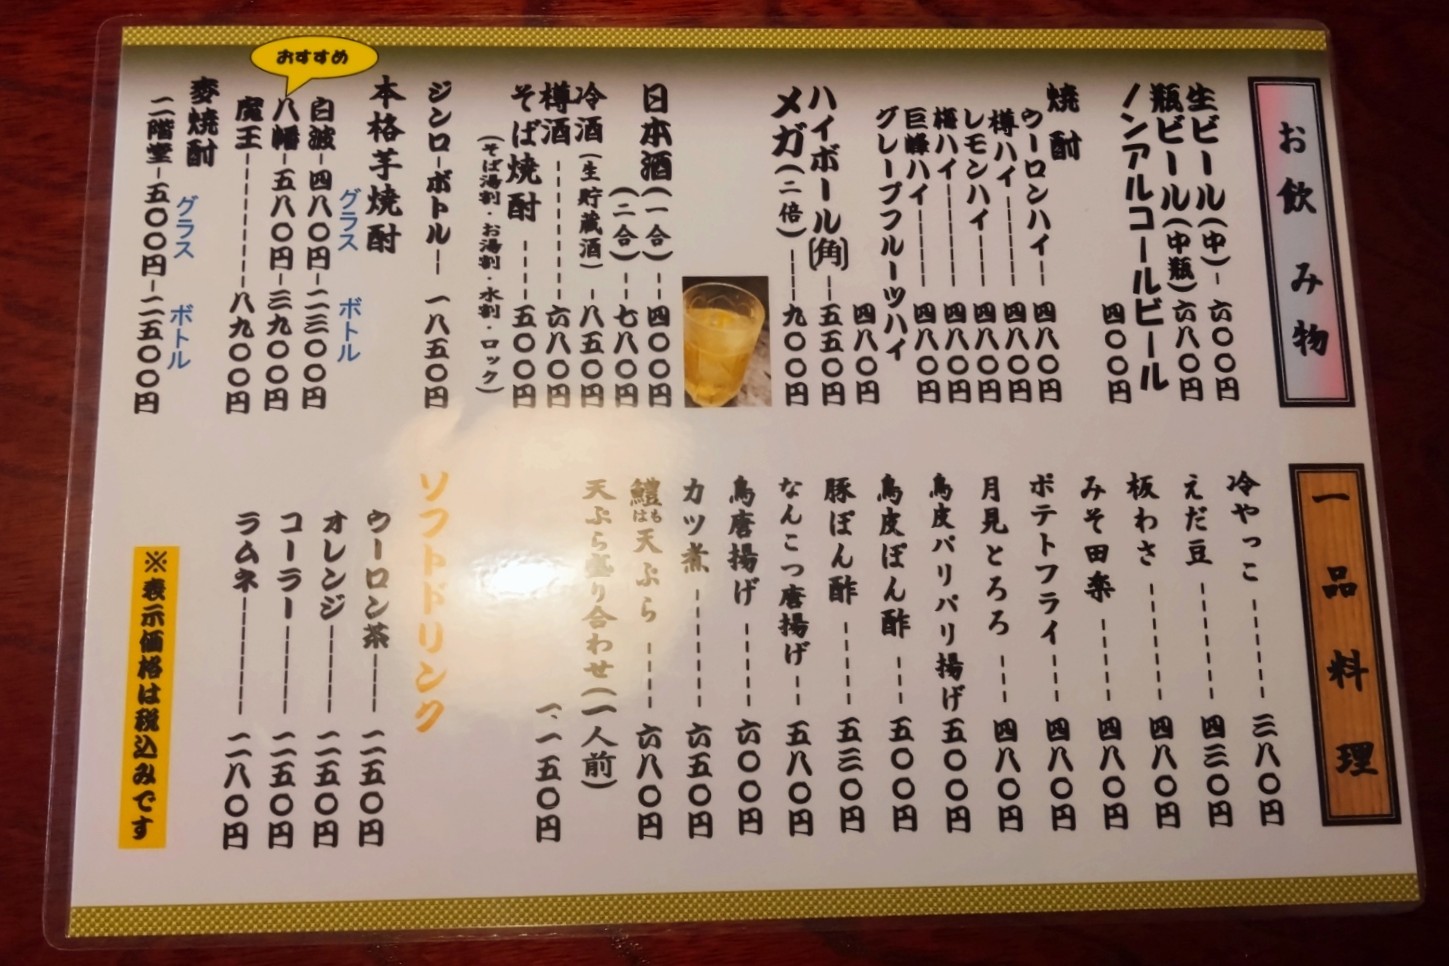 お飲み物
生ビール(中)六〇〇円
瓶ビール(中瓶)六八〇円
ノンアルコールビール
四〇〇円
焼酎
ウーロンハイ四八〇円
樽ハイ四八〇円
レモンハイ四八〇円
梅ハイ四八〇円
巨峰ハイ四八〇円
グレープフルーツハイ
四八〇円
ハイボール(角)五五〇円
メガ(二倍)九〇〇円
日本酒(一合)四〇〇円
(二合)七八〇円
冷酒(生貯蔵酒)八五〇円
樽酒六八〇円
そば焼酎五〇〇円
(そば湯割・お湯割・水割・ロック)
ジンローボトル一八五〇円
本格芋焼酎
グラス ボトル
おすすめ
白波四八〇円二三〇〇円
八幡五八〇円三九〇〇円
魔王八九〇〇円
麦焼酎
グラス ボトル
二階堂五〇〇円二五〇〇円
一品料理
冷やっこ三八〇円
えだ豆四三〇円
板わさ四八〇円
みそ田楽四八〇円
ポテトフライ四八〇円
月見とろろ四八〇円
鳥皮パリパリ揚げ五〇〇円
鳥皮ぽん酢五〇〇円
豚ぽん酢五三〇円
なんこつ唐揚げ五八〇円
鳥唐揚げ六〇〇円
カツ煮六五〇円
鱧はも天ぷら六八〇円
天ぷら盛り合わせ(一人前)
一、一五〇円
ソフトドリンク
ウーロン茶二五〇円
オレンジ二五〇円
コーラー二五〇円
ラムネ二八〇円
※表示価格は税込みです